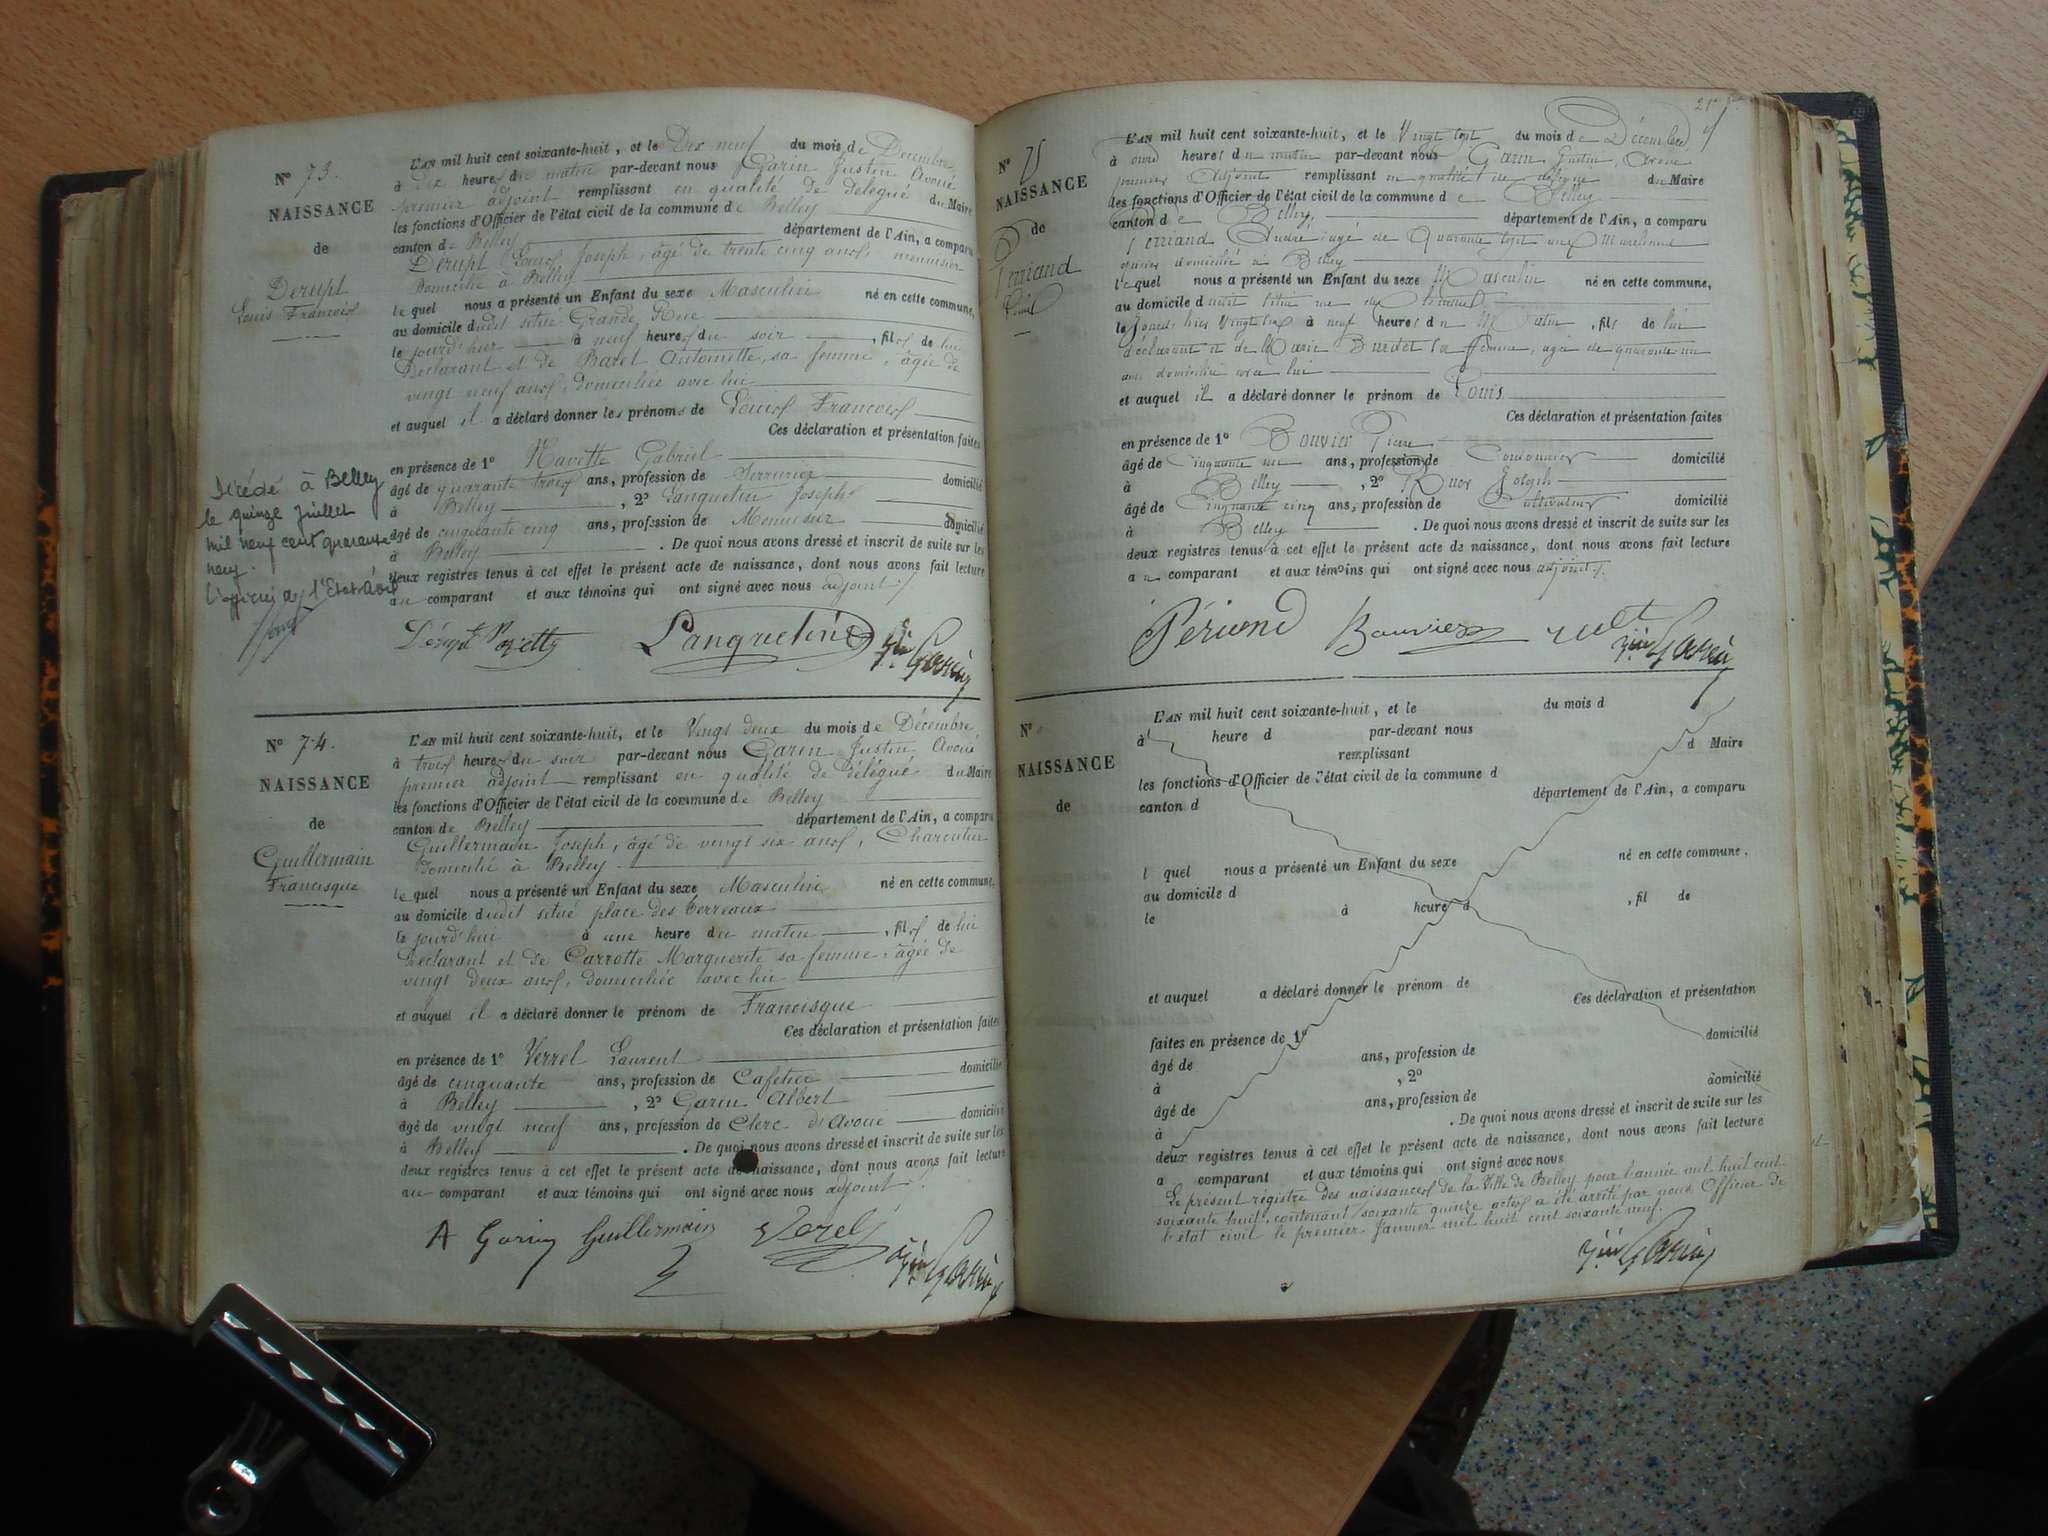 N° 73.
NAISSANCE
de
Derupt
Louis François
L'AN mil huit cent soixante-huit, et le Dix neuf du mois de Decembre
à dix heures du matin par-devant nous Garin Justin Avoué
premier adjoint remplissant en qualité de délégué du Maire
les fonctions d'Officier de l'état civil de la commune de Belley
canton de Belley département de l'Ain, a comparu
Derupt Louis Joseph, âgé de trente cinq ans, menuisier
Domicilié à Belley
lequel nous a présenté un Enfant du sexe Masculin né en cette commune,
au domicile dudit situé Grande Rue
le jourd'hier à neuf heures du soir, fils de lui
Déclarant et de Barel Antoinette, sa femme, âgée de
vingt neuf ans, domiciliée avec lui
et auquel il a déclaré donner les prénoms de Louis François
Ces déclaration et présentation faites
en présence de 1° Navette Gabriel
âgé de quarante trois ans, profession de Serrurier domicilié
à Belley, 2° Lanquetin Joseph
âgé de cinquante cinq ans, profession de Menuisier domicilié
à Belley. De quoi nous avons dressé et inscrit de suite sur les
deux registres tenus à cet effet le présent acte de naissance, dont nous avons fait lecture
au comparant et aux témoins qui ont signé avec nous adjoint
Décédé à Belley
le quinze juillet
mil neuf cent quarante
neuf.
L'officier de l'Etat Civil
Lanquetin
Garin
N° 74.
NAISSANCE
de
Guillermain
Francisque
L'AN mil huit cent soixante-huit, et le Vingt deux du mois de Décembre
à trois heures du soir par-devant nous Garin Justin Avoué
premier adjoint remplissant en qualité de délégué du Maire
les fonctions d'Officier de l'état civil de la commune de Belley
canton de Belley département de l'Ain, a comparu
Guillermain Joseph, âgé de vingt six ans, Charcutier
Domicilié à Belley
lequel nous a présenté un Enfant du sexe Masculin né en cette commune,
au domicile dudit situé place des Terreaux
le jourd'hui à une heure du matin, fils de lui
Déclarant et de Carrotte Marguerite sa femme, âgée de
vingt deux ans, domiciliée avec lui
et auquel il a déclaré donner le prénom de Francisque
Ces déclaration et présentation faites
en présence de 1° Verrel Laurent
âgé de cinquante ans, profession de Cafetier domicilié
à Belley, 2° Garin Albert
âgé de vingt neuf ans, profession de Clerc d'Avoué domicilié
à Belley. De quoi nous avons dressé et inscrit de suite sur les
deux registres tenus à cet effet le présent acte de naissance, dont nous avons fait lecture
au comparant et aux témoins qui ont signé avec nous adjoint.
A Garin Guillermain Verel Garin
N° 75
NAISSANCE
de
L'AN mil huit cent soixante-huit, et le Vingt sept du mois de Décembre
à onze heures du matin par-devant nous Garin Justin, Avoué
premier Adjoint remplissant en qualité de délégué du Maire
les fonctions d'Officier de l'état civil de la commune de Belley
canton de Belley, département de l'Ain, a comparu
André, agé de Quarante sept ans
domicilié à Belley
lequel nous a présenté un Enfant du sexe Masculin né en cette commune,
au domicile dudit situé rue
le jourd'hier Vingt six à neuf heures du Matin, fils de lui
déclarant et de Marie Burdet sa femme, agée de quarante un
ans domiciliée avec lui
et auquel il a déclaré donner le prénom de Louis
Ces déclaration et présentation faites
en présence de 1° Bouvier Pierre
âgé de Cinquante un ans, profession de Cordonnier domicilié
à Belley, 2° Joseph
âgé de Cinquante cinq ans, profession de Cultivateur domicilié
à Belley. De quoi nous avons dressé et inscrit de suite sur les
deux registres tenus à cet effet le présent acte de naissance, dont nous avons fait lecture
au comparant et aux témoins qui ont signé avec nous adjoint.
Bouvier Garin
N°
NAISSANCE
de
L'AN mil huit cent soixante-huit, et le du mois d
à heure d par-devant nous
remplissant d Maire
les fonctions d'Officier de l'état civil de la commune d
canton d département de l'Ain, a comparu
l quel nous a présenté un Enfant du sexe né en cette commune,
au domicile d
le à heure d, fil de
et auquel a déclaré donner le prénom de
Ces déclaration et présentation
faites en présence de 1° domicilié
âgé de ans, profession de
à, 2° domicilié
âgé de ans, profession de
à. De quoi nous avons dressé et inscrit de suite sur les
deux registres tenus à cet effet le présent acte de naissance, dont nous avons fait lecture
a comparant et aux témoins qui ont signé avec nous
Le présent registre des naissances de la Ville de Belley pour l'année mil huit cent
soixante huit, contenant soixante quinze actes a été arrêté par nous Officier de
l'état civil le premier Janvier mil huit cent soixante neuf.
Garin